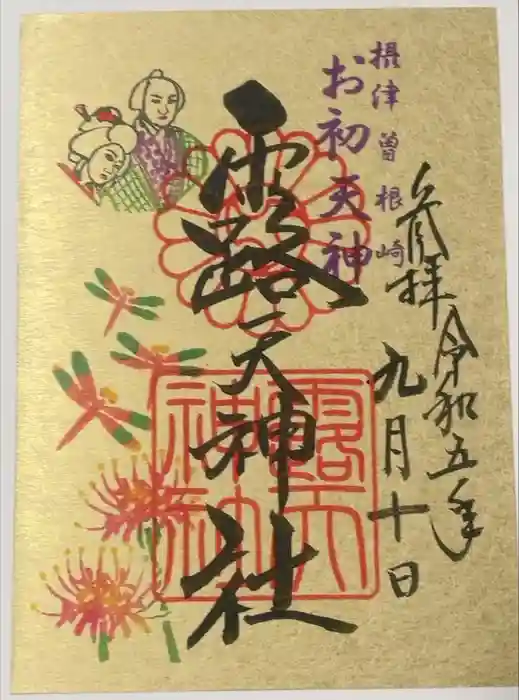 摂津曽根崎
お初天神
参拝 令和五年
九月十日
露天神社
露天
神社